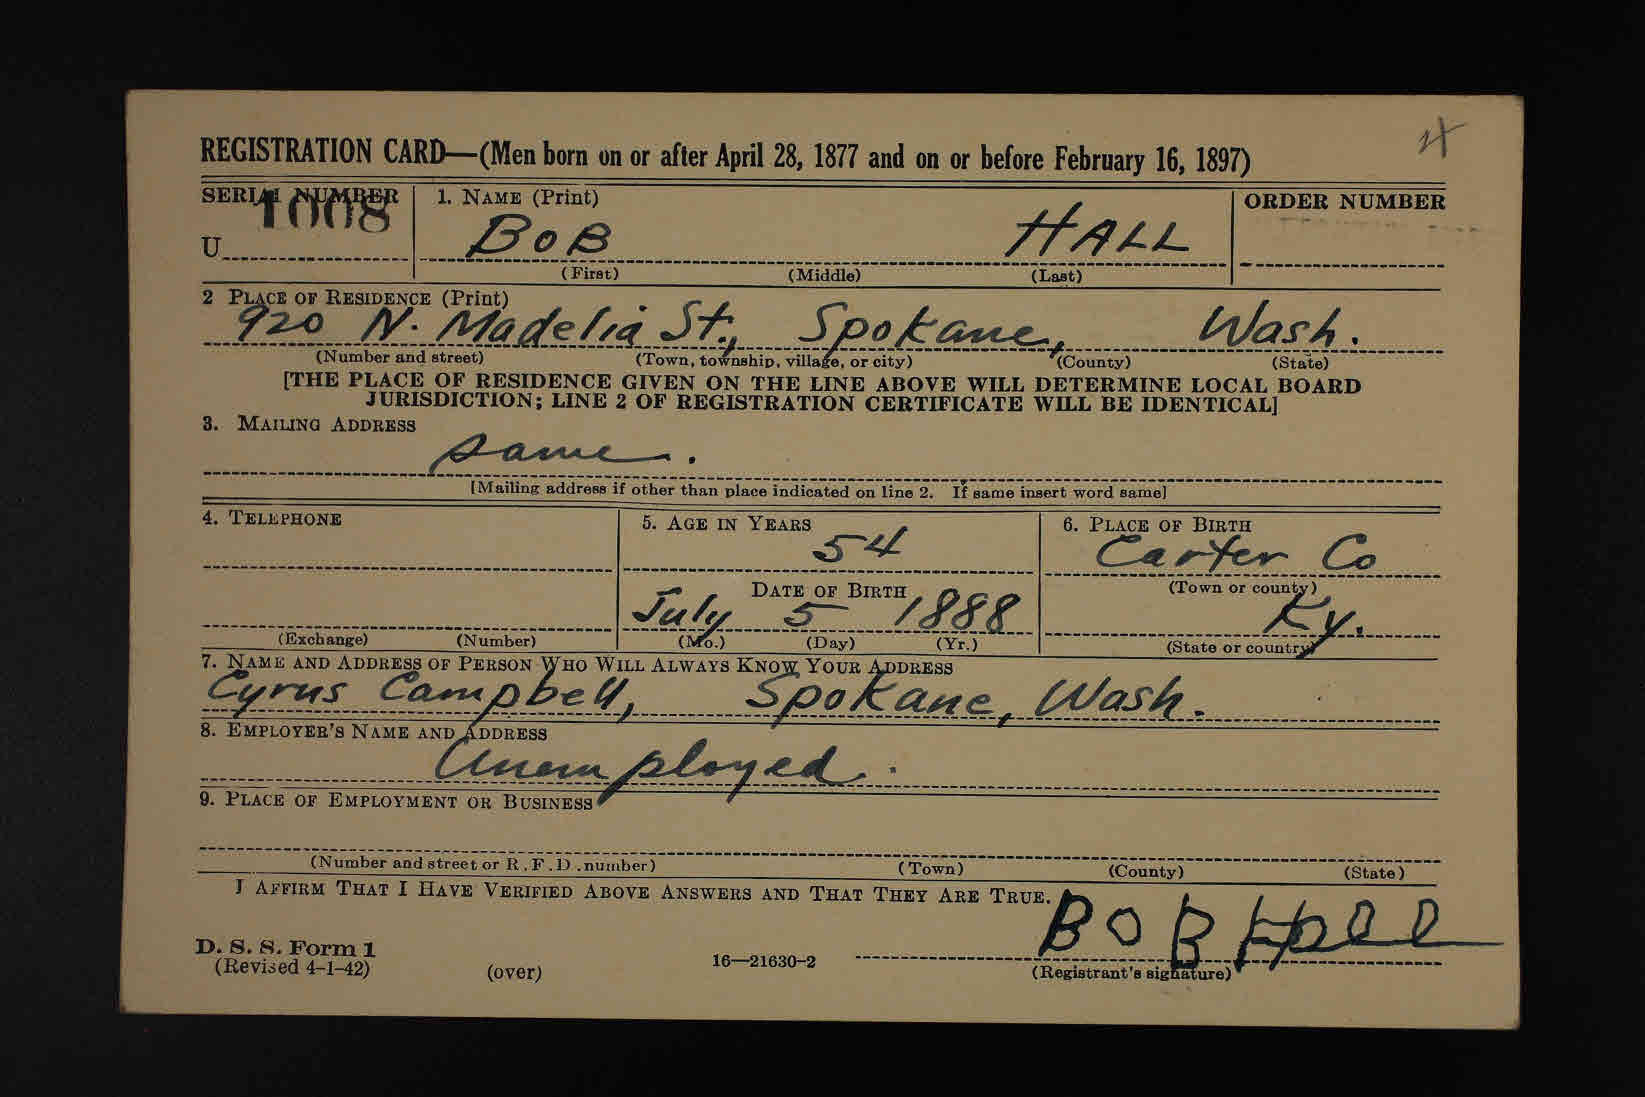 REGISTRATION CARD—(Men born on or after April 28, 1877 and on or before February 16, 1897)
SERIAL NUMBER 1. NAME (Print) ORDER NUMBER
1008
U BOB HALL
(First) (Middle) (Last)
2 PLACE OF RESIDENCE (Print)
920 N. Madelia St., Spokane, Wash.
(Number and street) (Town, township, village, or city) (County) (State)
[THE PLACE OF RESIDENCE GIVEN ON THE LINE ABOVE WILL DETERMINE LOCAL BOARD
JURISDICTION; LINE 2 OF REGISTRATION CERTIFICATE WILL BE IDENTICAL]
3. MAILING ADDRESS
same.
[Mailing address if other than place indicated on line 2. If same insert word same]
4. TELEPHONE 5. AGE IN YEARS 6. PLACE OF BIRTH
54 Carter Co
DATE OF BIRTH (Town or county)
July 5 1888 Ky.
(Exchange) (Number) (Mo.) (Day) (Yr.) (State or country)
7. NAME AND ADDRESS OF PERSON WHO WILL ALWAYS KNOW YOUR ADDRESS
Cyrus Campbell, Spokane, Wash.
8. EMPLOYER'S NAME AND ADDRESS
Unemployed.
9. PLACE OF EMPLOYMENT OR BUSINESS
(Number and street or R.F.D. number) (Town) (County) (State)
I AFFIRM THAT I HAVE VERIFIED ABOVE ANSWERS AND THAT THEY ARE TRUE.
BOB Hall
D. S. S. Form 1
(Revised 4-1-42) (over) 16—21630-2 (Registrant's signature)